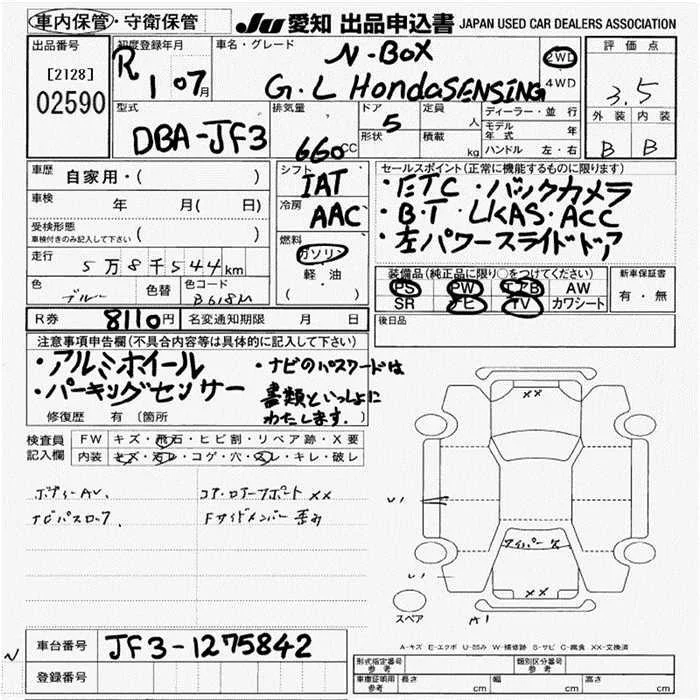 車内保管・守衛保管 JU 愛知 出品申込書 JAPAN USED CAR DEALERS ASSOCIATION
出品番号 初度登録年月 車名・グレード 評価点
[2128] R 1 07月 N-BOX 2WD
02590 G・L HondaSENSING 4WD 3.5
外装 内装
B B
型式 排気量 ドア 定員 ディーラー・並行
DBA-JF3 660CC 5 人 モデル年式 年
形状 積載 kg ハンドル 左・右
車歴 自家用・( ) シフト IAT セールスポイント(正常に機能するものに限ります)
・ETC・バックカメラ
車検 年 月(日) 冷房 AAC ・B.T・LKAS・ACC
受検形態 ( ) ・左パワースライドドア
車検付きのみ記入して下さい
燃料 ガソリン
軽・油
( )
走行 5万8千544km 装備品(純正品に限り○をつけてください) 新車保証書
色 ブルー 色替 色コード B618M PS PW エアB AW 有・無
SR ナビ TV カワシート
R券 8110円 名変通知期限 月 日 後日品
注意事項申告欄(不具合内容等は具体的に記入して下さい)
・アルミホイール ・ナビのパスワードは
・パーキングセンサー 書類といっしょに
わたします。
修復歴 有〔箇所 〕
検査員 FW キズ・飛石・ヒビ割・リペア跡・X要
記入欄 内装 キズ・汚レ・コゲ・穴・スレ・キレ・破レ
ボディーAU コア・ロアーサポートXX
ナビパスロック Fサイドメンバー歪み
XX
U1
ワイパーキズ
U1
XX
スペア A1
A-キズ E-エクボ U-凹み W-補修跡 S-サビ C-腐食 XX-交換済
車台番号 JF3-1275842
登録番号
形式指定番号 参考 類別区分番号 参考
車庫証明用 参考 長さ cm 幅 cm 高さ cm